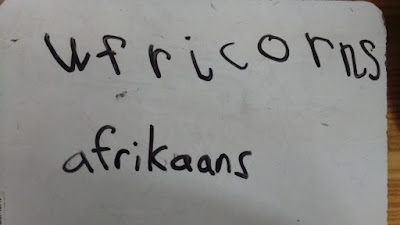 Ufricorns
afrikaans